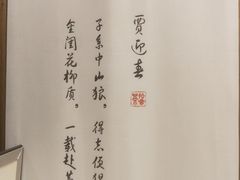 贾迎春
子系中山狼，得志便
金闺花柳质，一载赴